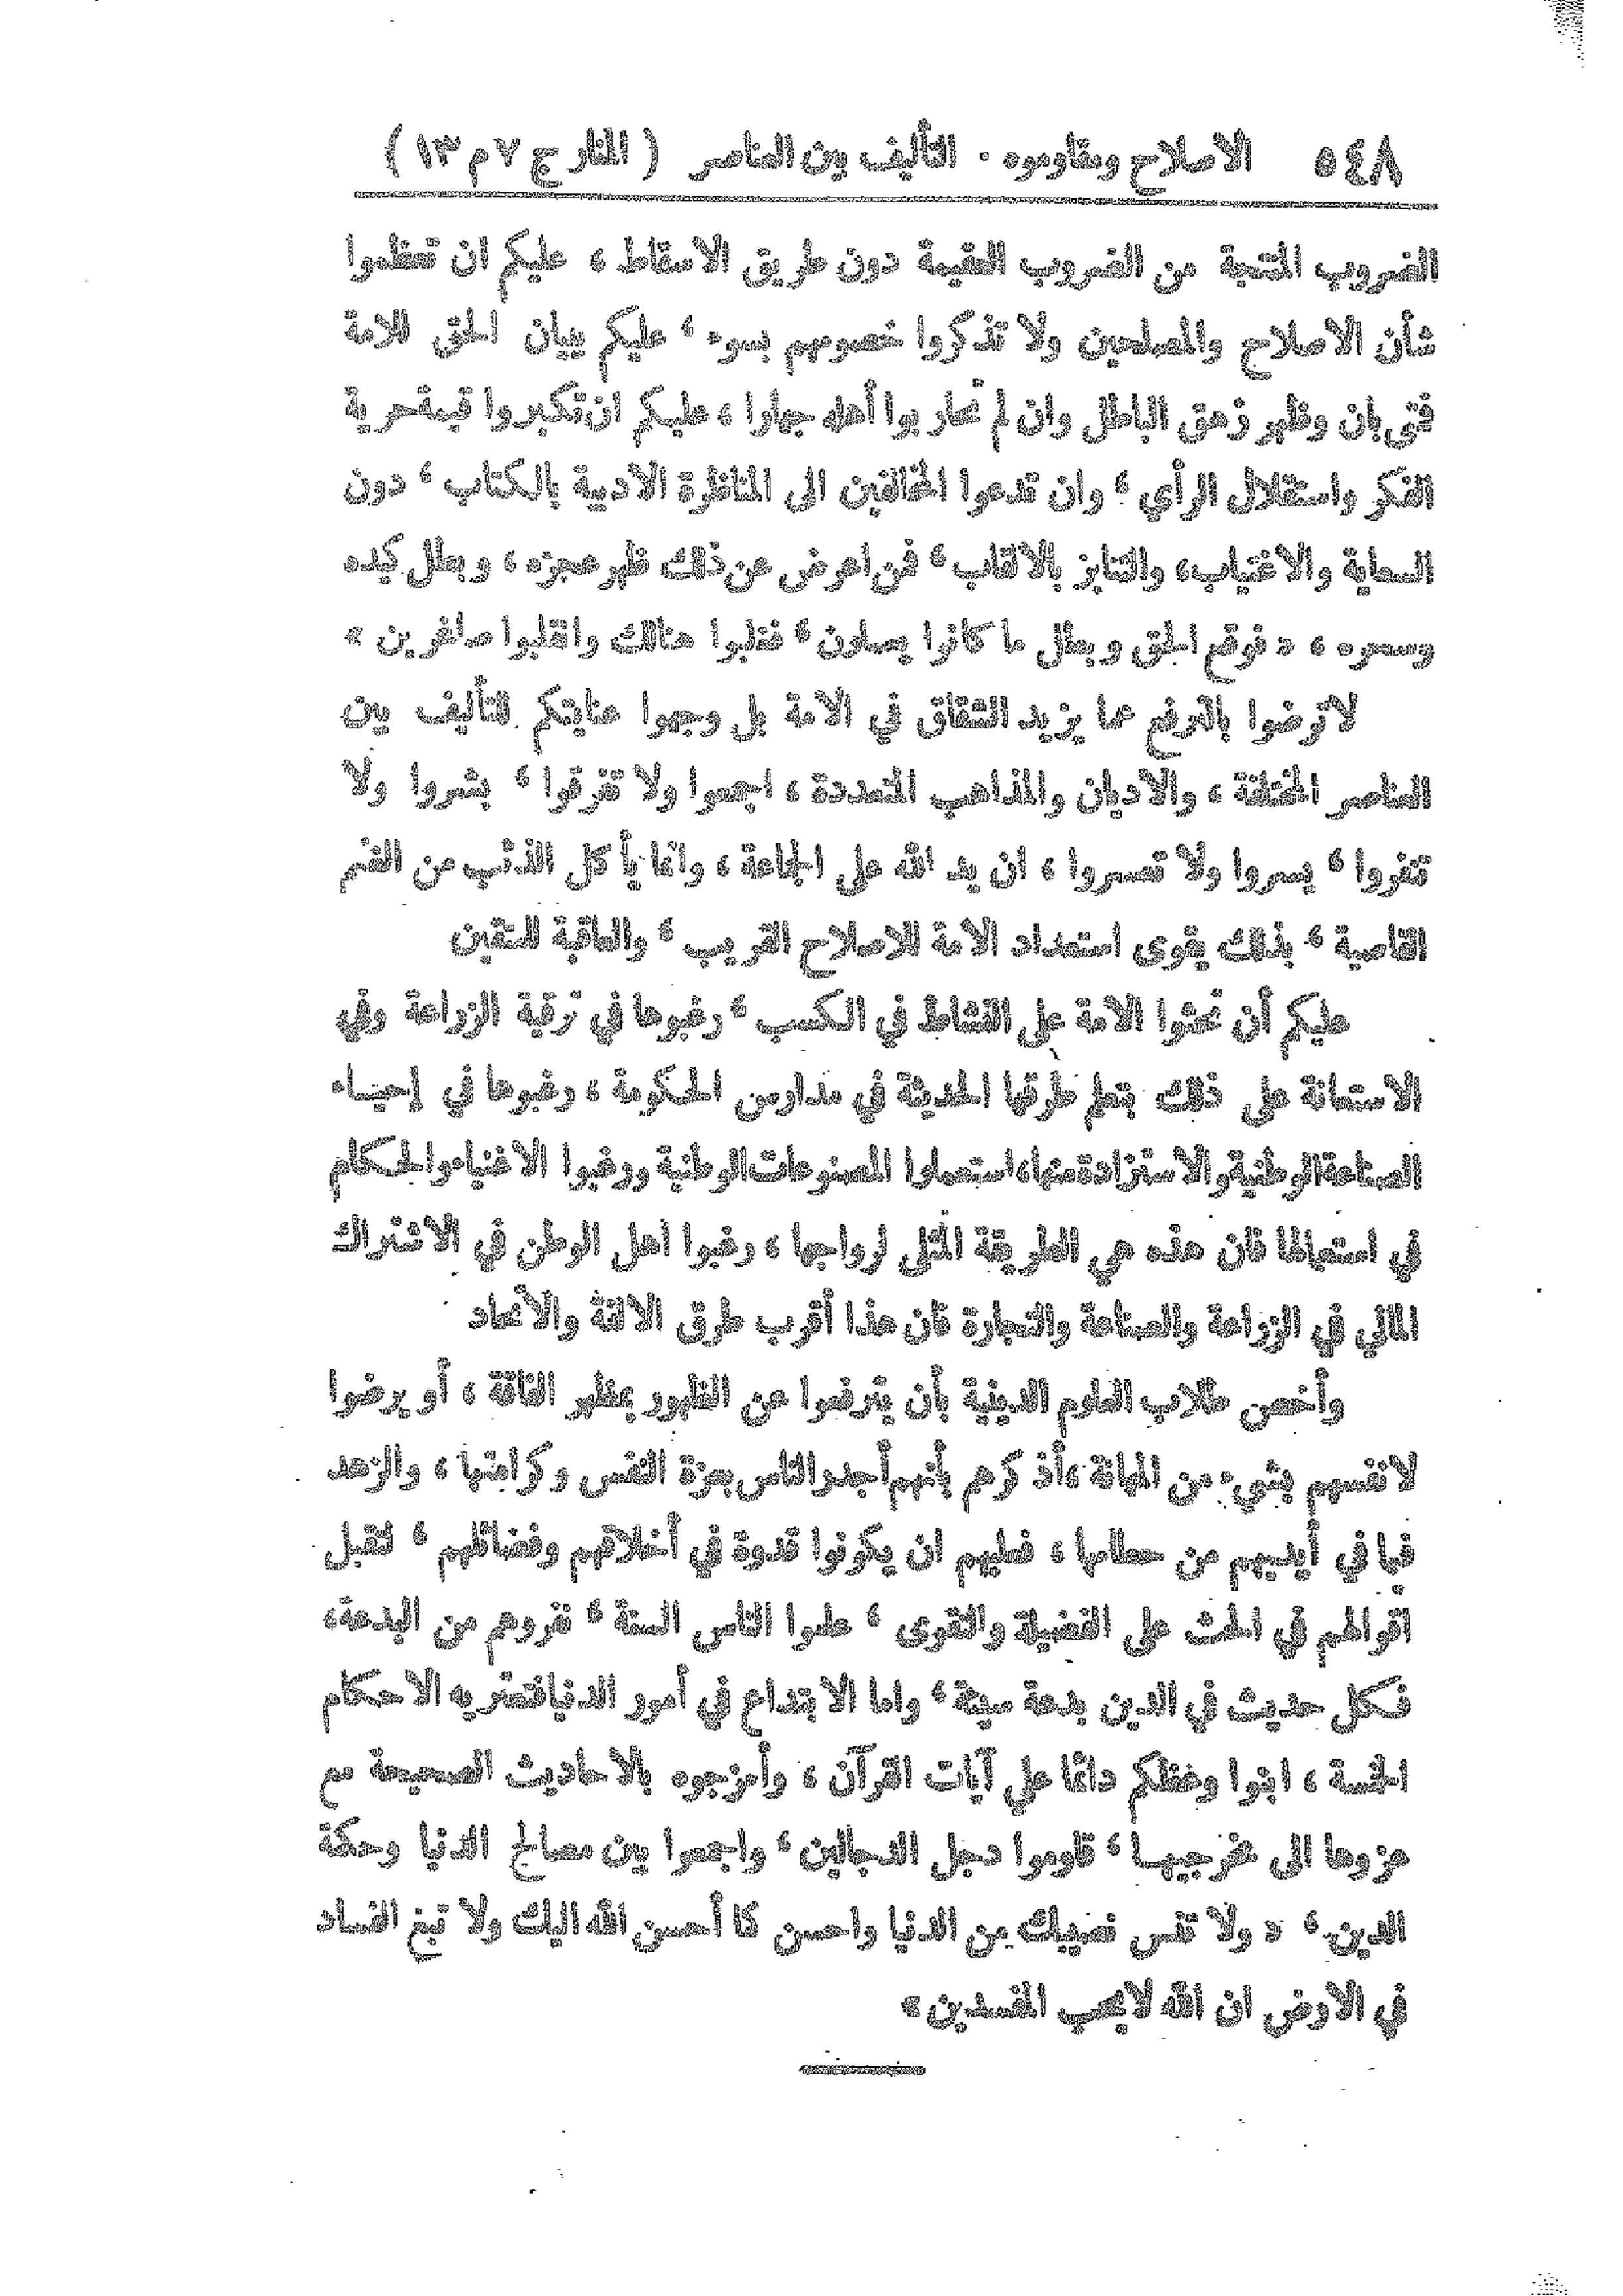 ٥٤٨ الاصلاح ومقاوموه . التأليف بين العناصر ( المنار ج ٧ م ١٣ )
الضروب المنتجة من الضروب العقيمة دون طريق الاسقاط ، عليكم ان تعظموا
شأن الاصلاح والمصلحين ولا تذكروا خصومهم بسوء ، عليكم ببيان الحق للامة
فتى بان وظهر زهق الباطل وان لم تحاربوا أهله جهارا ، عليكم ان تكبروا قيمة حرية
الفكر واستقلال الرأي ، وان تدعوا المخالفين الى المناظرة الادبية بالكتاب ، دون
السعاية والاغتياب ، والتنابز بالالقاب ، فمن اعرض عن ذلك ظهر عجزه ، وبطل كيده
وسحره ، « فوقع الحق وبطل ما كانوا يعملون ، فغلبوا هنالك وانقلبوا صاغرين »
لا ترضوا بالترفع عما يزيد الشقاق في الامة بل وجهوا عنايتكم للتأليف بين
العناصر المختلفة ، والاديان والمذاهب المتعددة ، اجمعوا ولا تفرقوا ، بشروا ولا
تنفروا ، يسروا ولا تعسروا ، ان يد الله على الجماعة ، وانما يأكل الذئب من الغنم
القاصية ، بذلك يقوى استعداد الامة للاصلاح القريب ، والعاقبة للمتقين
عليكم أن تحثوا الامة على النشاط في الكسب ، رغبوها في ترقية الزراعة وفي
الاستعانة على ذلك بتعلم طرقها الحديثة في مدارس الحكومة ، رغبوها في إحياء
الصناعة الوطنية والاستزادة منها ، استعملوا المصنوعات الوطنية ورغبوا الاغنياء والحكام
في استعمالها فان هذه هي الطريقة المثلى لرواجها ، رغبوا اهل الوطن في الاشتراك
المالي في الزراعة والصناعة والتجارة فان هذا أقرب طرق الالفة والاتحاد
وأخص طلاب العلوم الدينية بأن يترفعوا عن الظهور بمظهر الفاقة ، أو يرضوا
لانفسهم بشيء من المهانة ، أذكرهم بأنهم أجدر الناس بعزة النفس وكرامتها ، والزهد
فيما في أيديهم من حطامها ، فعليهم ان يكونوا قدوة في أخلاقهم وفضائلهم ، لتقبل
أقوالهم في الحث على الفضيلة والتقوى ، علموا الناس السنة ، نفروهم من البدعة ،
فكل حديث في الدين بدعة سيئة ، واما الابتداع في أمور الدنيا فتعتريه الاحكام
الخمسة ، ابنوا وعظكم دائما على آيات القرآن ، وأمزجوه بالاحاديث الصحيحة مع
عزوها الى مخرجيها ، قاوموا دجل الدجالين ، واجمعوا بين مصالح الدنيا وحكمة
الدين ، « ولا تنس نصيبك من الدنيا واحسن كما أحسن الله اليك ولا تبغ الفساد
في الارض ان الله لا يحب المفسدين »